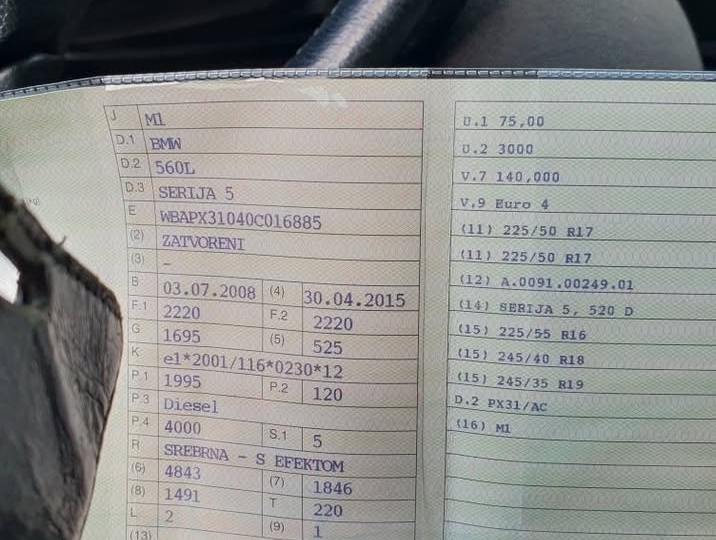 J M1
D.1 BMW
D.2 560L
D.3 SERIJA 5
E WBAPX31040C016885
(2) ZATVORENI
(3) –
B 03.07.2008 (4) 30.04.2015
F.1 2220 F.2 2220
G 1695 (5) 525
K e1*2001/116*0230*12
P.1 1995 P.2 120
P.3 Diesel
P.4 4000 S.1 5
R SREBRNA - S EFEKTOM
(6) 4843 (7) 1846
(8) 1491 T 220
L 2 (9) 1
(13)
U.1 75,00
U.2 3000
V.7 140,000
V.9 Euro 4
(11) 225/50 R17
(11) 225/50 R17
(12) A.0091.00249.01
(14) SERIJA 5, 520 D
(15) 225/55 R16
(15) 245/40 R18
(15) 245/35 R19
D.2 PX31/AC
(16) M1